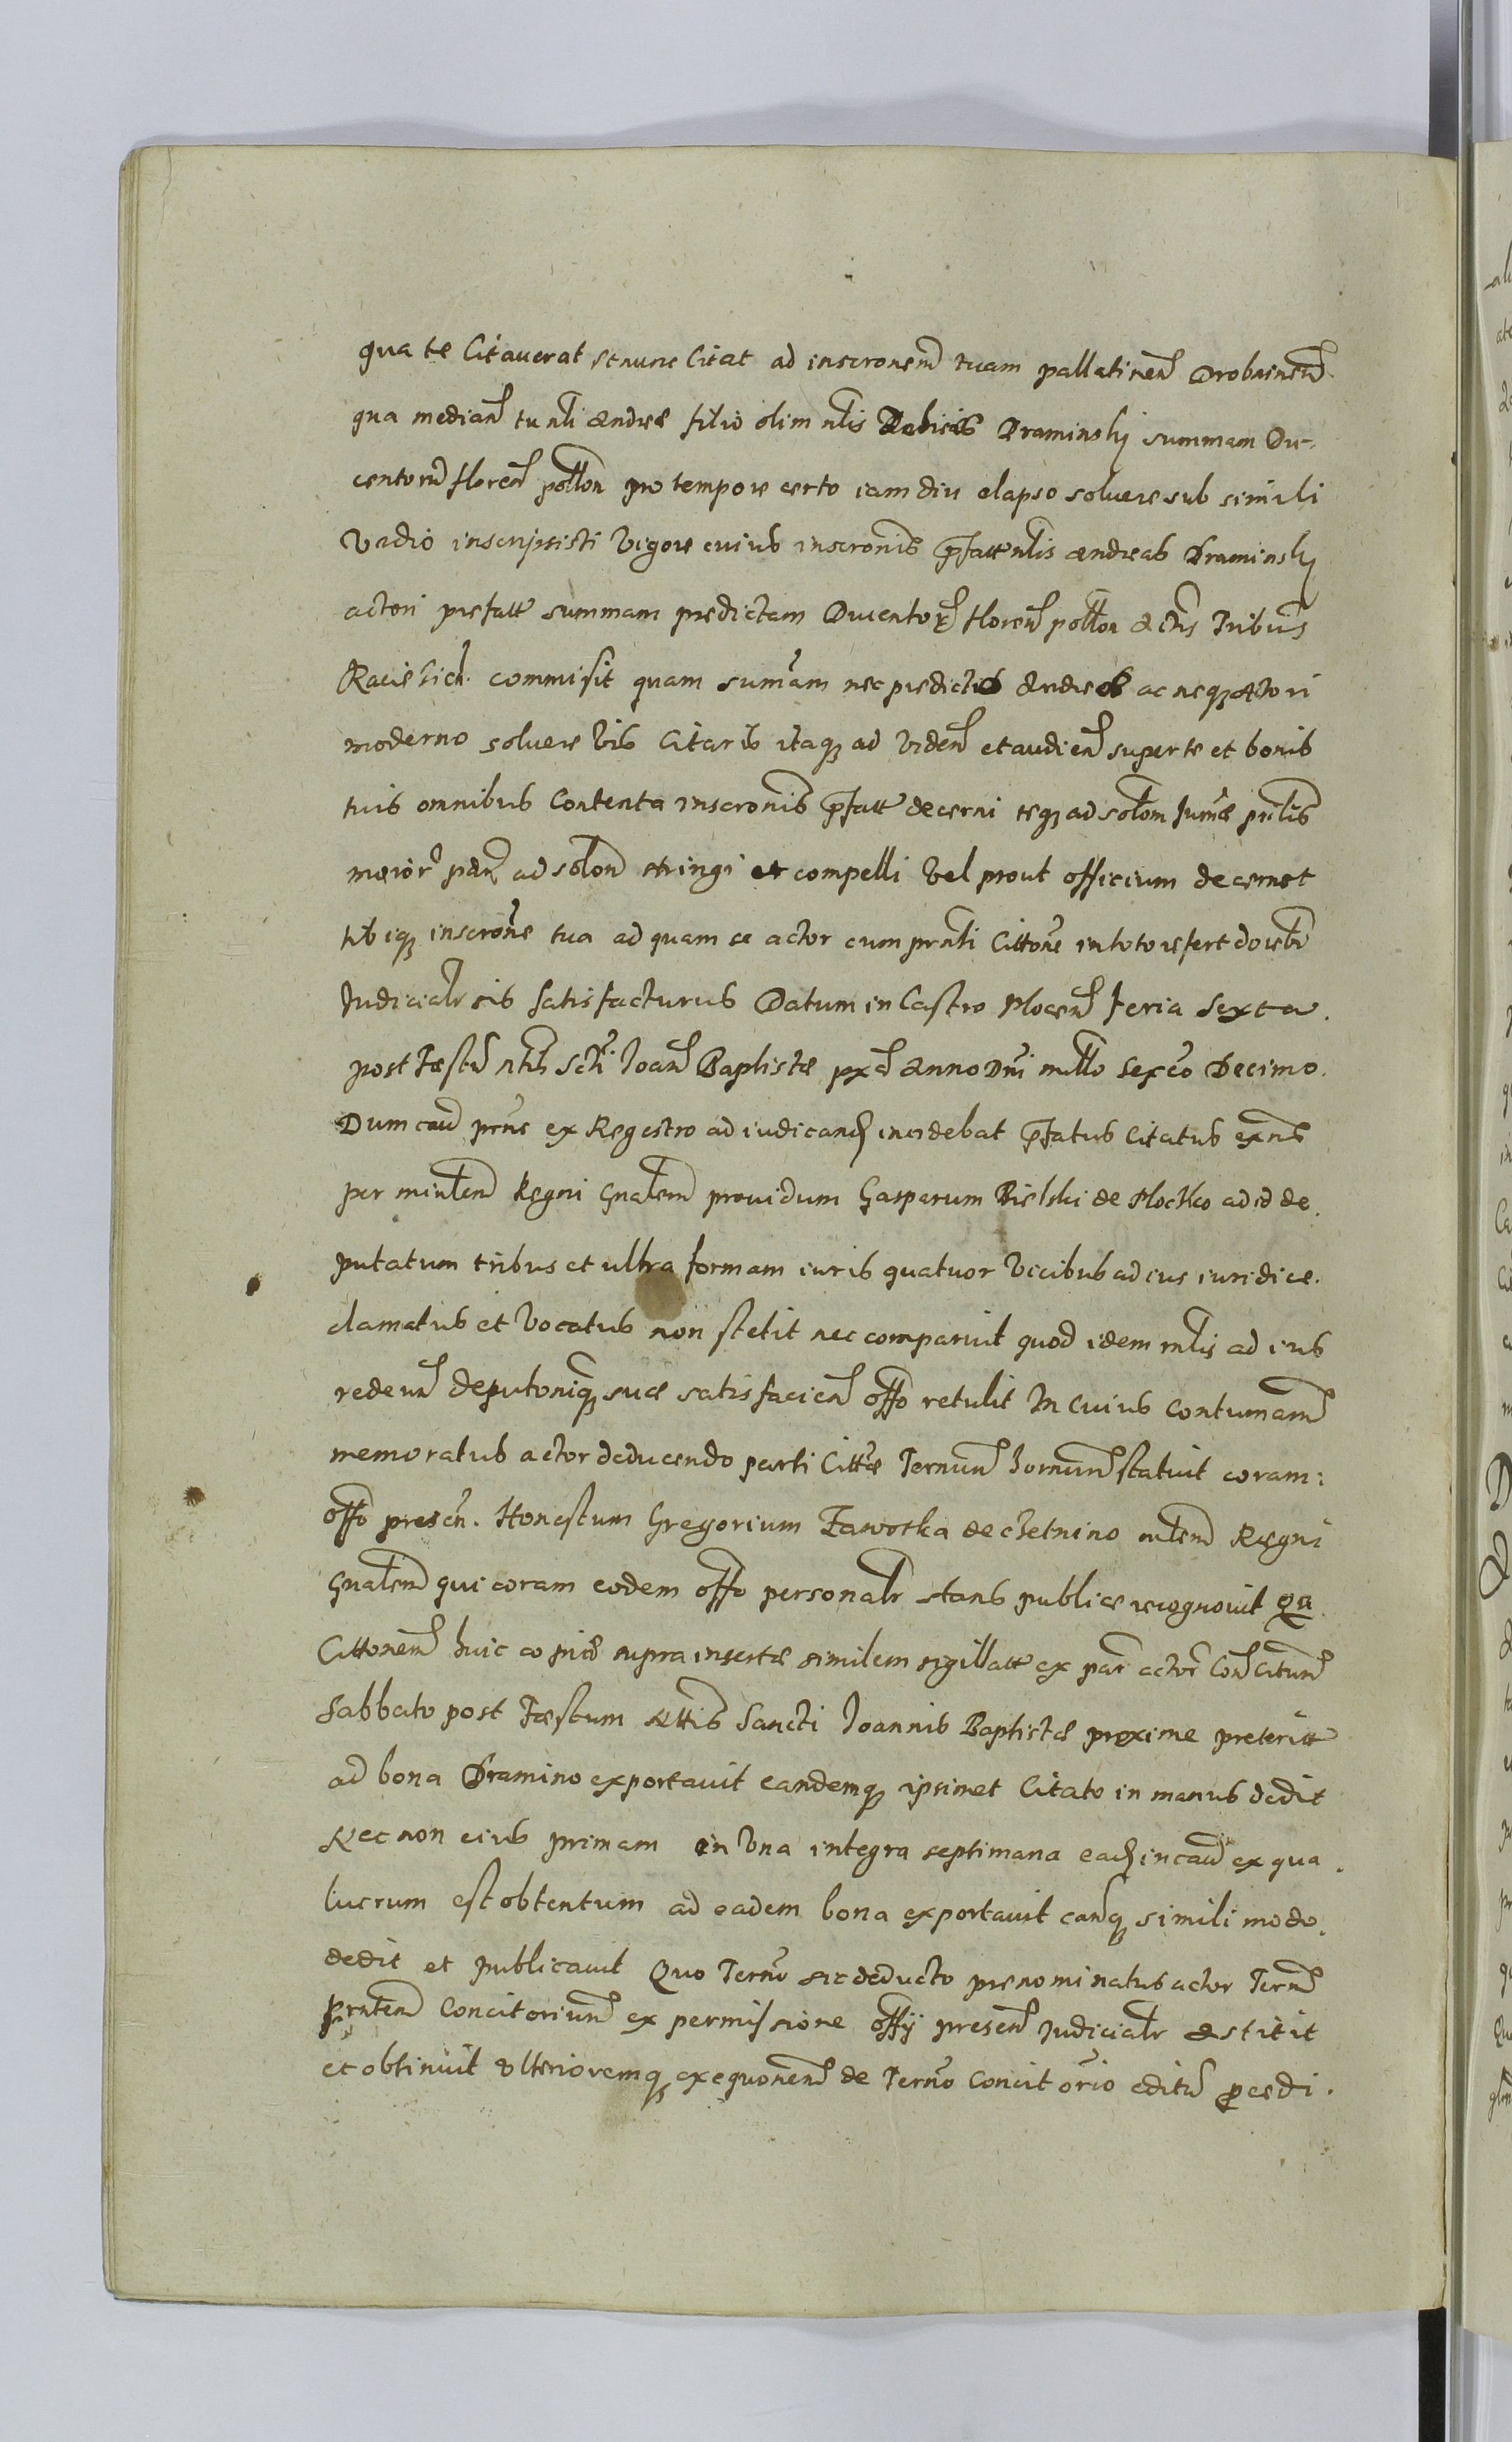 qua te Citauerat et nunc Citat ad inscronem tuam pallatinen Drobninen
qua median tu nli Andreæ filio olim nlis Draminskj summam Du-
centorũ floren pollon pro tempore certo iam diu elapso soluere sub simili
Vadio inscripsisti Vigore cuius inscronis pfatt nlis Andreas Draminskj
actori prefatt summam predictam Ducentor floren pollon Actis Tribus
Raciesick commisit quam sumam nec predicto Andreæ ac neq Actori
moderno soluere Vis Citaris itaq ad Viden et audien super te et bonis
tuis omnibus Contenta inscronis pfatt decerni teq ad solom sumæ pnlis
maior paen ad solon stringi et compelli Vel prout officium decernet
tibiq inscrone tua ad quam se actor cum prnti Cittone in toto refert
Judicialr sis satisfacturus Datum in Castro Plocen feria Sexta
post Fæstũ ntis Scti Joan Baptistæ pxe Anno Dni millo Sexco Decimo.
Dum caũ prns ex Regestro ad iudicand incidebat pfatus Citatus exns
per minlem Regni Gnalem prouidum Gasparum Bielski de Plocko ad id de
putatum tribus et ultra formam iuris quatuor Vicibus ad ius iuridice
clamatus et Vocatus non stetit nec comparuit quod idem mlis ad ius
redeun deputoniq suæ satisfacien offo retulit In Cuius Contumam
memoratus actor deducendo parti Cittæ Ternum hornum statuit coram
offo presen. Honestum Gregorium Zaworka de Chetnino mlem Regni
Gnalem qui coram eodem offo personalr stans publice recognouit qa
Cittonem huic copiæ supra insertæ similem sigillatt ex par actor Con Citum
Sabbato post Fæstum Nttis Sancti Joannis Baptistæ proxime preteritt
ad bona Dramino exportauit eandemq ipsimet Citato in manus dedit
Nec non eius primam in Vna integra septimana ead in caũ ex qua
lucrum est obtentum ad eadem bona exportauit eanq simili modo
dedit et publicauit Quo Terno sic deducto prenominatus actor Tern
Prntem Concitorium ex permissione offij presen Judicialr Astitit
et obtinuit Vlterioremq exequonem de Terno Concitorio editũ pcedi.